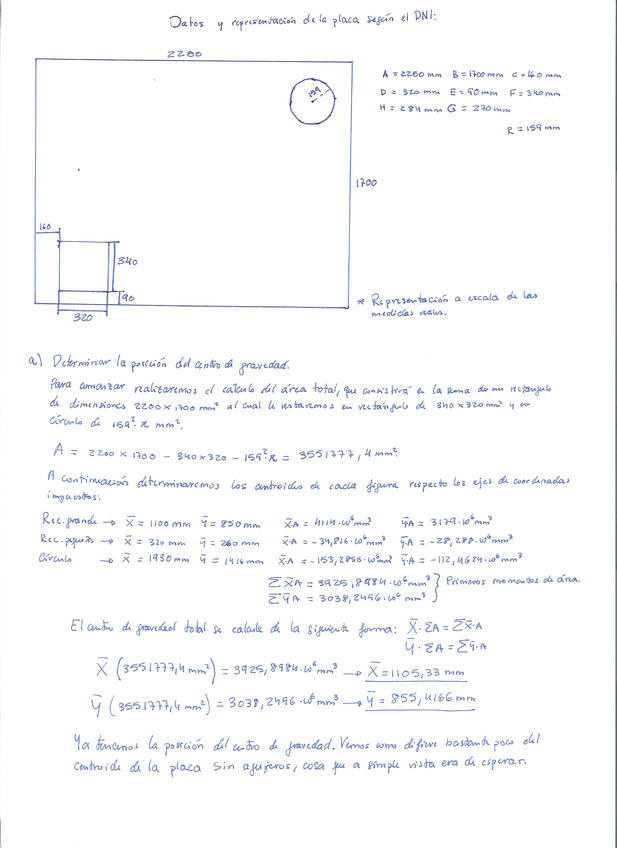 Datos y representación de la placa según el DNI:
2200
159
A = 2200 mm B = 1700 mm C = 160 mm
D = 320 mm E = 90 mm F = 340 mm
H = 284 mm G = 270 mm
R = 159 mm
1700
160
340
90
320
* Representación a escala de las
medidas reales.
a) Determinar la posición del centro de gravedad.
Para comenzar realizaremos el cálculo del área total, que consistirá en la suma de un rectángulo
de dimensiones 2200 x 1700 mm² al cual le restaremos un rectángulo de 340 x 320 mm² y un
círculo de 159²·π mm².
A = 2200 x 1700 - 340 x 320 - 159²·π = 3551777,4 mm².
A continuación determinaremos los centroides de cada figura respecto los ejes de coordenadas
impuestos:
Rec. grande → X̄ = 1100 mm Ȳ = 850 mm X̄·A = 4114·10⁶ mm³ ȲA = 3179·10⁶ mm³
Rec. pequeño → X̄ = 320 mm Ȳ = 260 mm X̄·A = -34,816·10⁶ mm³ Ȳ·A = -28,288·10⁶ mm³
Círculo → X̄ = 1930 mm Ȳ = 1416 mm X̄·A = -153,2856·10⁶ mm³ Ȳ·A = -112,4624·10⁶ mm³
∑X̄A = 3925,8984·10⁶ mm³
∑ȲA = 3038,2496·10⁶ mm³ } Primeros momentos de área
El centro de gravedad total se calcula de la siguiente forma: X̄·∑A = ∑X̄·A
Ȳ·∑A = ∑Ȳ·A
X̄ (3551777,4 mm²) = 3925,8984·10⁶ mm³ → X̄ = 1105,33 mm
Ȳ (3551777,4 mm²) = 3038,2496·10⁶ mm³ → Ȳ = 855,4166 mm
Ya tenemos la posición del centro de gravedad. Vemos como difiere bastante poco del
centroide de la placa sin agujeros, cosa que a simple vista era de esperar.